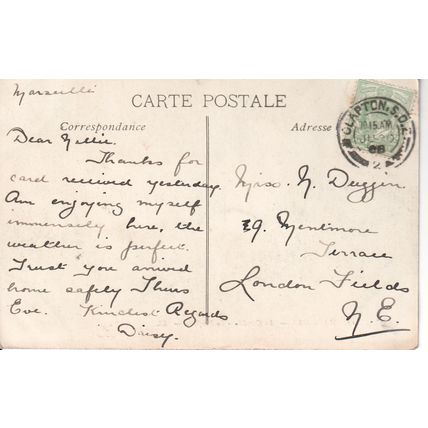 Marseille
CARTE POSTALE
Correspondance
Adresse
CLAPTON. S.O.
10.15 AM
08
2
Dear Nellie.
Thanks for
card received yesterday.
Am enjoying myself
immensely here, the
weather is perfect.
Trust you arrived
home safely Thurs
Eve. Kindest Regards
Daisy.
Miss. N. Duggen.
29. Mentmore
Terrace
London Fields
N. E.